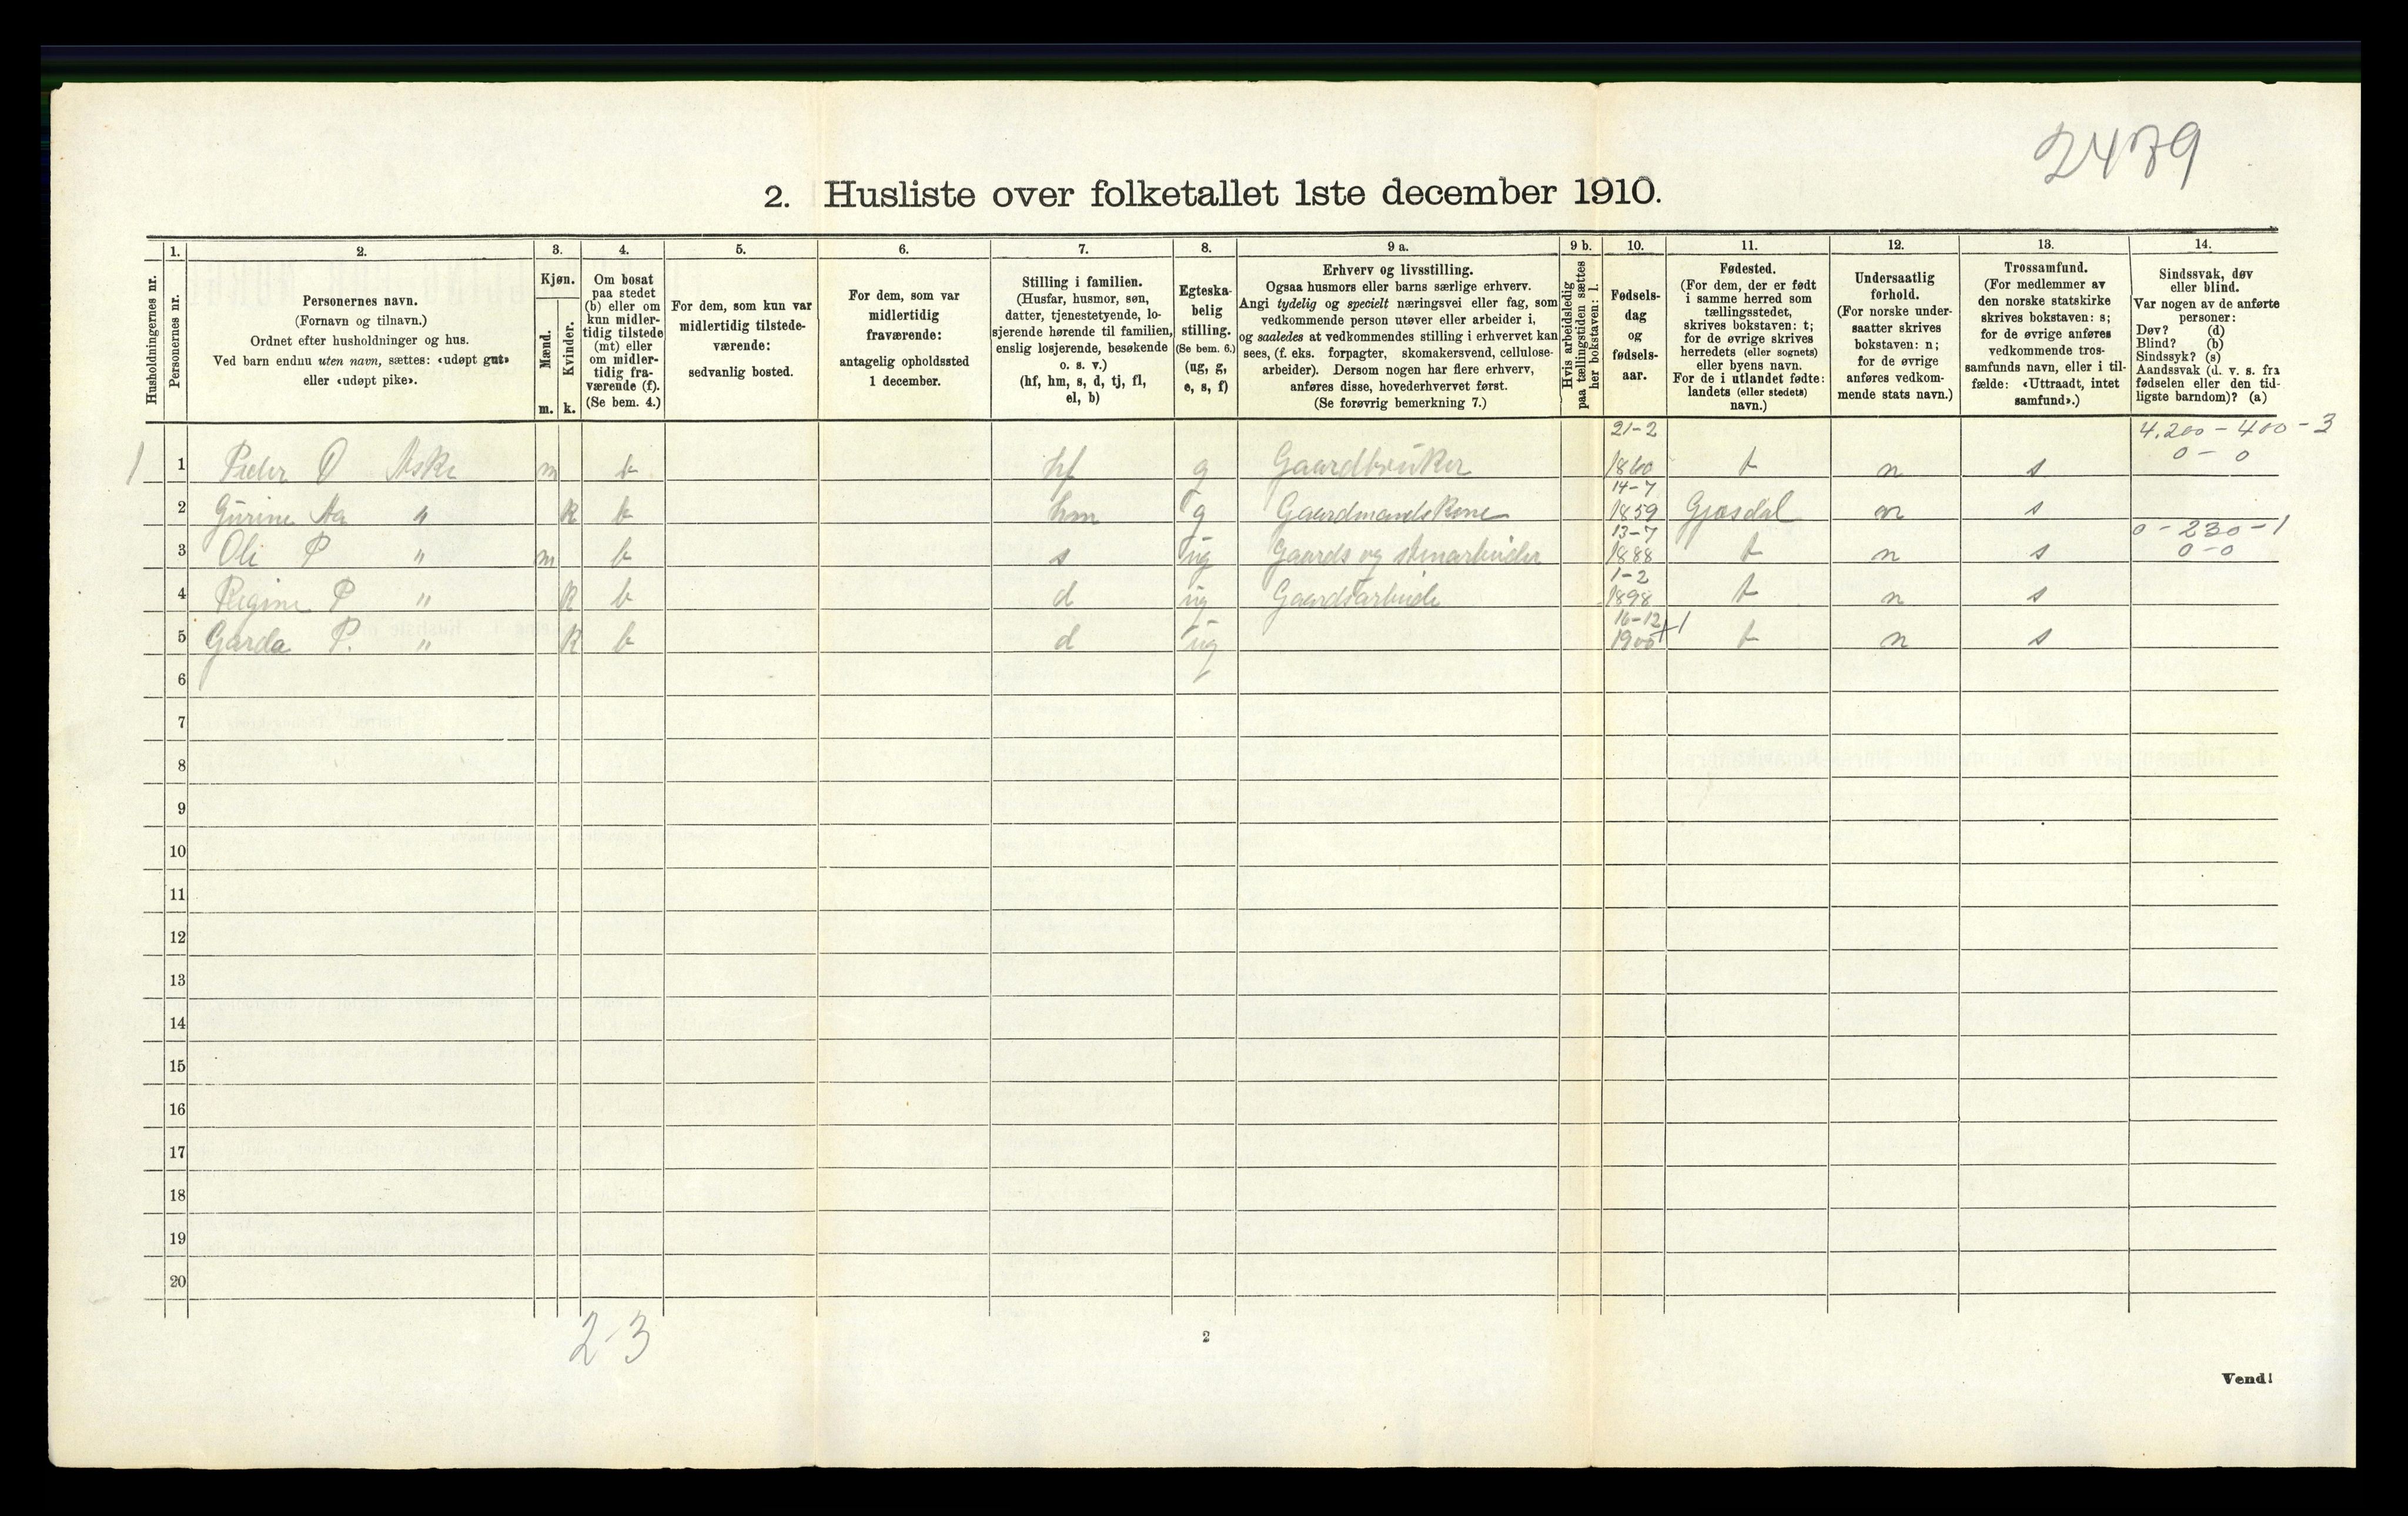 2479
2. Husliste over folketallet 1ste december 1910.
Husholdningernes nr.
1.
Personernes nr.
2.
Personernes navn.
(Fornavn og tilnavn.)
Ordnet efter husholdninger og hus.
Ved barn endnu uten navn, sættes: «udøpt gut»
eller «udøpt pike».
3.
Kjøn.
Mænd.
m.
Kvinder.
k.
4.
Om bosat
paa stedet
(b) eller om
kun midler-
tidig tilstede
(mt) eller
om midler-
tidig fra-
værende (f).
(Se bem. 4.)
5.
For dem, som kun var
midlertidig tilstede-
værende:
sedvanlig bosted.
6.
For dem, som var
midlertidig
fraværende:
antagelig opholdssted
1 december.
7.
Stilling i familien.
(Husfar, husmor, søn,
datter, tjenestetyende, lo-
sjerende hørende til familien,
enslig losjerende, besøkende
o. s. v.)
(hf, hm, s, d, tj, fl,
el, b)
8.
Egteska-
belig
stilling.
(Se bem. 6.)
(ug, g,
e, s, f)
9 a.
Erhverv og livsstilling.
Ogsaa husmors eller barns særlige erhverv.
Angi tydelig og specielt næringsvei eller fag, som
vedkommende person utøver eller arbeider i,
og saaledes at vedkommendes stilling i erhvervet kan
sees, (f. eks. forpagter, skomakersvend, cellulose-
arbeider). Dersom nogen har flere erhverv,
anføres disse, hovederhvervet først.
(Se forøvrig bemerkning 7.)
9 b.
Hvis arbeidsledig
paa tællingstiden sættes
her bokstaven: l.
10.
Fødsels-
dag
og
fødsels-
aar.
11.
Fødested.
(For dem, der er født
i samme herred som
tællingsstedet,
skrives bokstaven: t;
for de øvrige skrives
herredets (eller sognets)
eller byens navn.
For de i utlandet fødte:
landets (eller stedets)
navn.)
12.
Undersaatlig
forhold.
(For norske under-
saatter skrives
bokstaven: n;
for de øvrige
anføres vedkom-
mende stats navn.)
13.
Trossamfund.
(For medlemmer av
den norske statskirke
skrives bokstaven: s;
for de øvrige anføres
vedkommende tros-
samfunds navn, eller i til-
fælde: «Uttraadt, intet
samfund».)
14.
Sindssvak, døv
eller blind.
Var nogen av de anførte
personer:
Døv? (d)
Blind? (b)
Sindssyk? (s)
Aandssvak (d. v. s. fra
fødselen eller den tid-
ligste barndom)? (a)
1 1 Peder O Aske m b hf g Gaardbruker 21-2 1860 t n s 4.200-400-3 0-0
2 Gurine Aa " k b hm g Gaardmandskone 14-7 1859 Gjesdal n s
3 Ole P " m b s ug Gaards og stenarbeider 13-7 1888 t n s 0-230-1 0-0
4 Regine P " k b d ug Gaardsarbeide 1-2 1898 t n s
5 Garda P. " k b d ug 16-12 1900 +1 t n s
6
7
8
9
10
11
12
13
14
15
16
17
18
19
20
2-3
2
Vend!